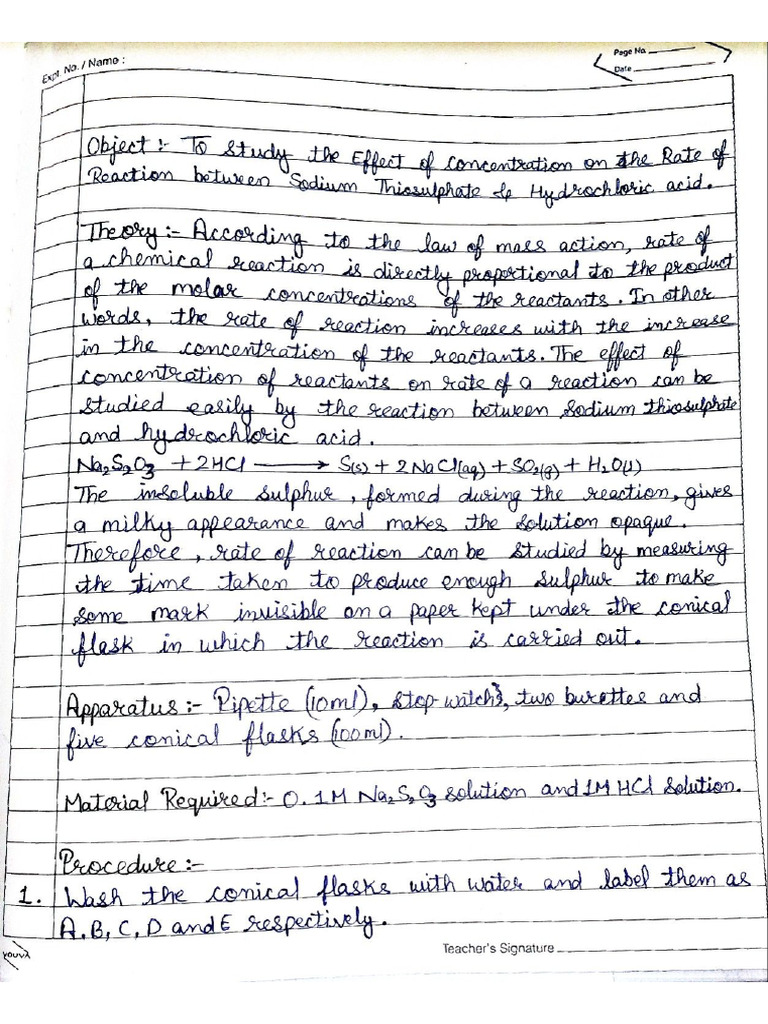 Expt. No. / Name :
Page No.
Date
Object :- To Study the Effect of concentration on the Rate of
Reaction between Sodium Thiosulphate & Hydrochloric acid.
Theory :- According to the law of mass action, rate of
a chemical reaction is directly proportional to the product
of the molar concentrations of the reactants. In other
words, the rate of reaction increases with the increase
in the concentration of the reactants. The effect of
concentration of reactants on rate of a reaction can be
studied easily by the reaction between sodium thiosulphate
and hydrochloric acid.
Na₂S₂O₃ + 2HCl ⟶ S(s) + 2NaCl(aq) + SO₂(g) + H₂O(l)
The insoluble sulphur, formed during the reaction, gives
a milky appearance and makes the solution opaque.
Therefore, rate of reaction can be studied by measuring
the time taken to produce enough sulphur to make
some mark invisible on a paper kept under the conical
flask in which the reaction is carried out.
Apparatus :- Pipette (10ml), stop-watch, two burettes and
five conical flasks (100ml).
Material Required :- 0.1M Na₂S₂O₃ solution and 1M HCl solution.
Procedure :-
1. Wash the conical flasks with water and label them as
A, B, C, D and E respectively.
Teacher's Signature
youva